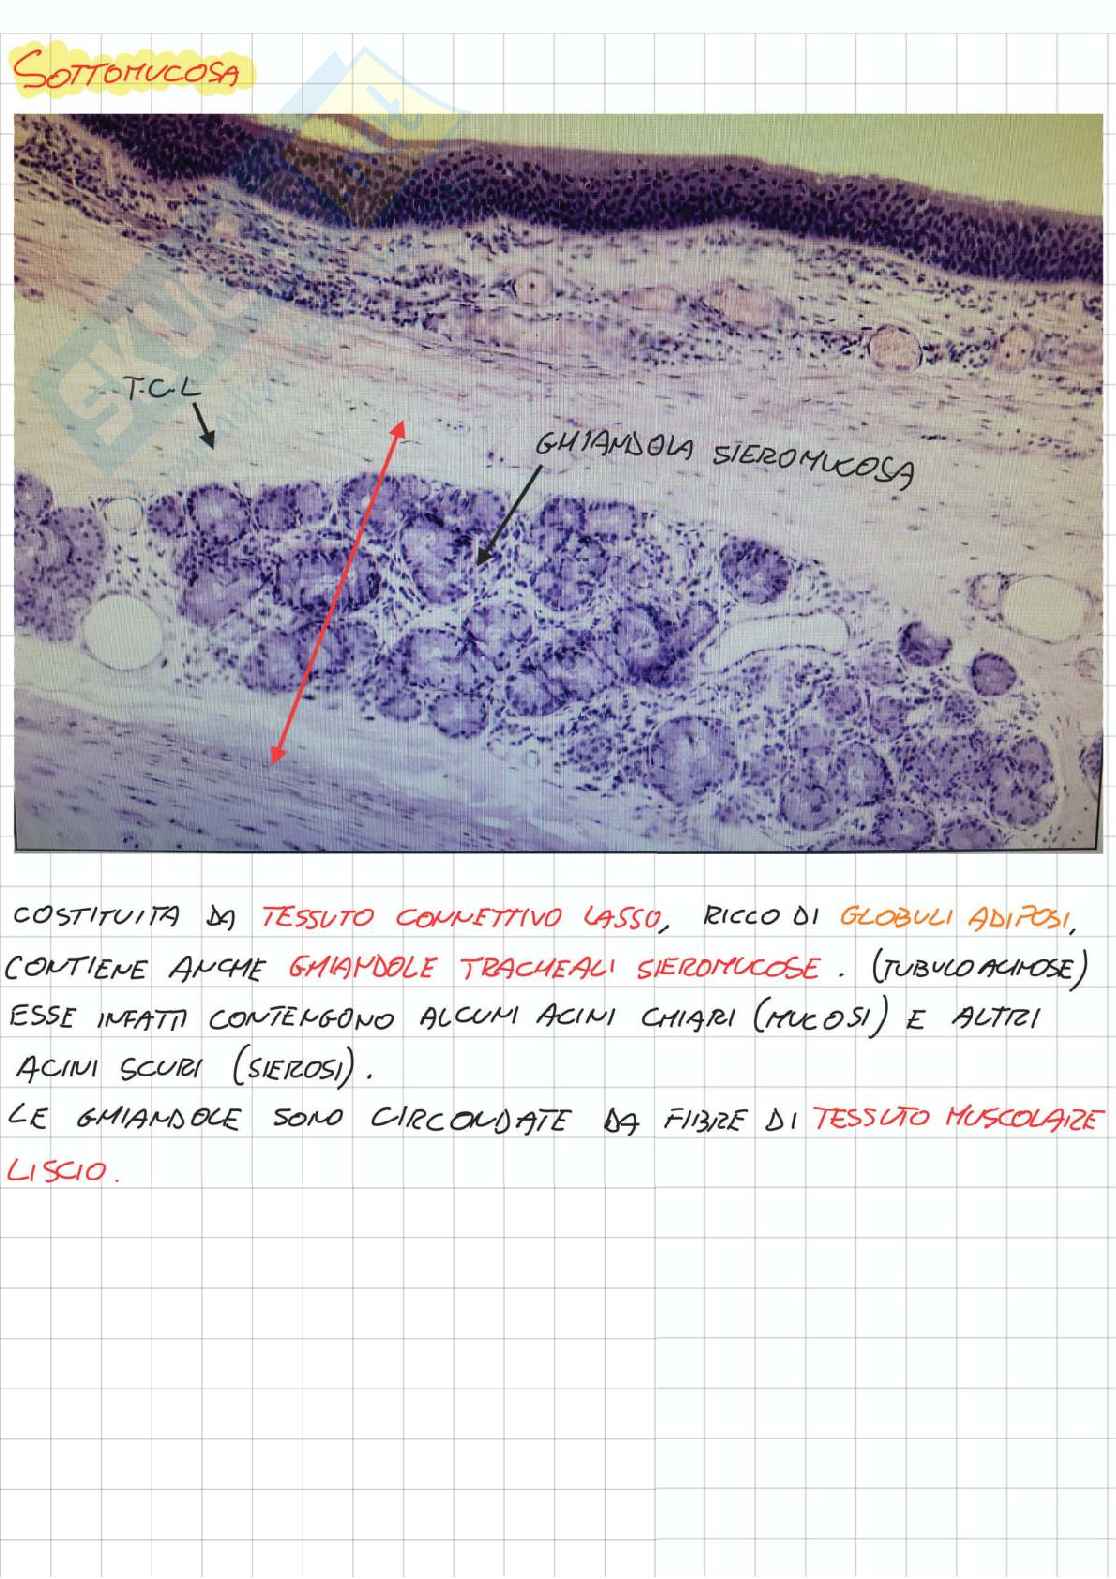 SOTTOMUCOSA
T.C.L
GHIANDOLA SIEROMUCOSA
COSTITUITA DA TESSUTO CONNETTIVO LASSO, RICCO DI GLOBULI ADIPOSI,
CONTIENE ANCHE GHIANDOLE TRACHEALI SIEROMUCOSE. (TUBULOACINOSE)
ESSE INFATTI CONTENGONO ALCUNI ACINI CHIARI (MUCOSI) E ALTRI
ACINI SCURI (SIEROSI).
LE GHIANDOLE SONO CIRCONDATE DA FIBRE DI TESSUTO MUSCOLARE
LISCIO.